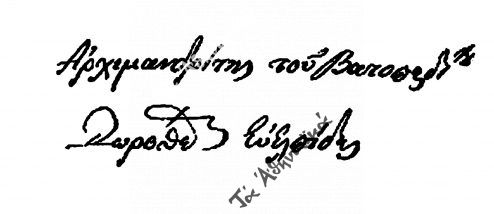 Ἀρχιμανδρίτης τοῦ Βατοπεδ
Δωρόθεος Εὐελπίδης
Τά Ἀθηναϊκά